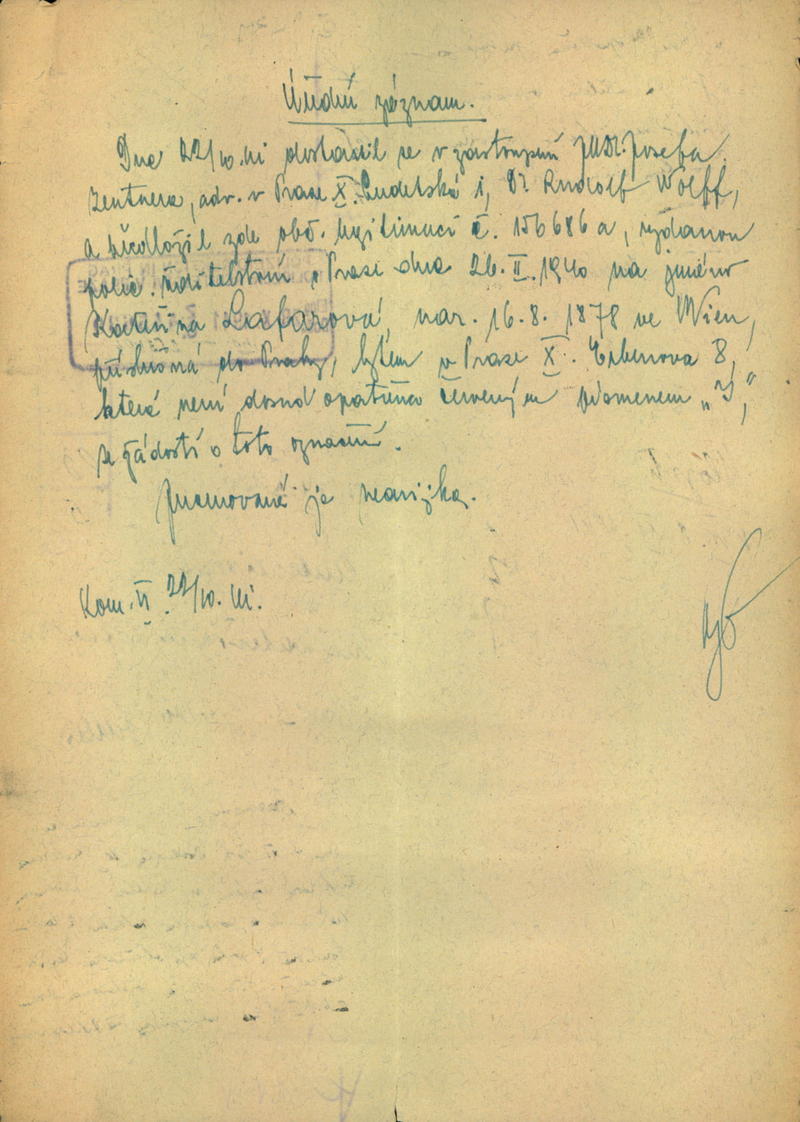 Úřední záznam.
Dne 22/10.41 dostavil se v zastoupení JUDr. Josefa
Zentnera, adv. v Praze X. Sudetská 1, Dr Rudolf Wolff,
a předložil zde obč. legitimaci č. 156686 a, vydanou
polic. ředitelstvím v Praze dne 26.II.1940 na jméno
Kateřina Lafarová, nar. 16.8.1878 ve Wien,
příslušná do Prahy, bytem v Praze X. Erbenova 8,
která není dosud opatřena červeným písmenem „J,“
se žádostí o toto označení.
Jmenovaná je nearijka.
Kom. VI 22/10.41.